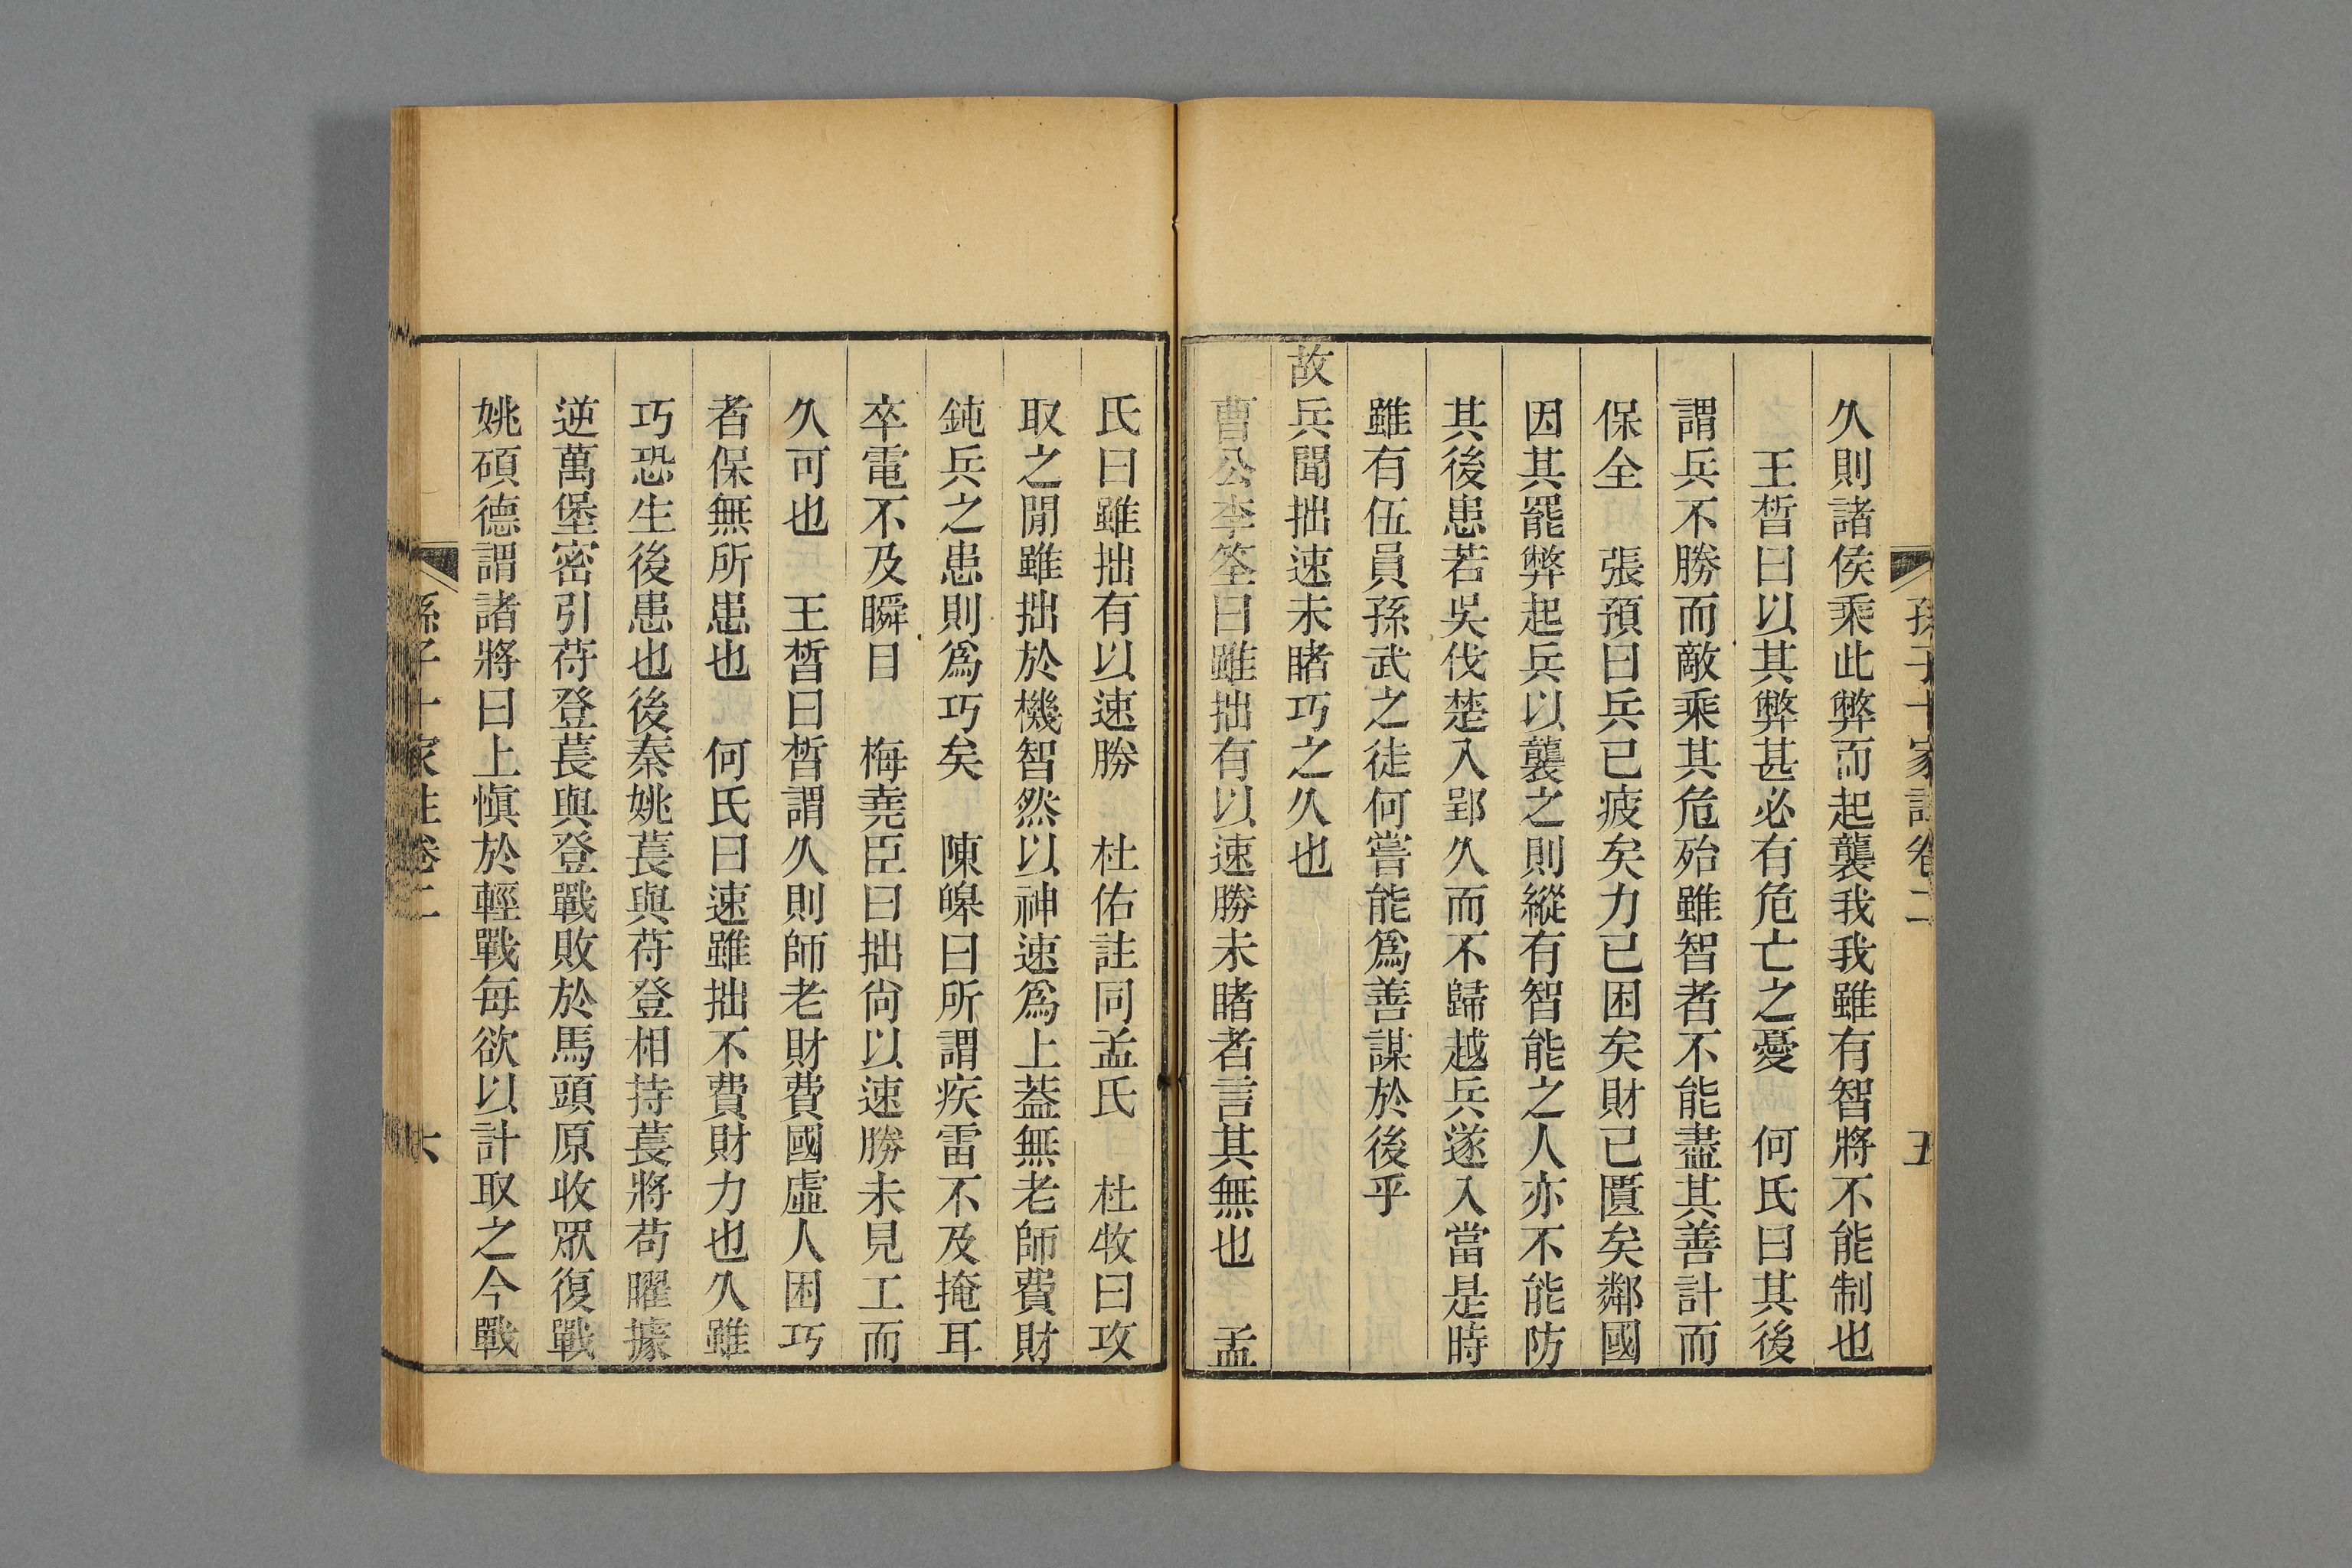 孫子十家註卷二 五
久則諸侯乘此弊而起襲我我雖有智將不能制也
王晳曰以其弊甚必有危亡之憂 何氏曰其後
謂兵不勝而敵乘其危殆雖智者不能盡其善計而
保全 張預曰兵已疲矣力已困矣財已匱矣鄰國
因其罷弊起兵以襲之則縱有智能之人亦不能防
其後患若吳伐楚入郢久而不歸越兵遂入當是時
雖有伍員孫武之徒何嘗能爲善謀於後乎
故兵聞拙速未睹巧之久也
曹公李筌曰雖拙有以速勝未睹者言其無也 孟
氏曰雖拙有以速勝 杜佑註同孟氏 杜牧曰攻
取之閒雖拙於機智然以神速爲上蓋無老師費財
鈍兵之患則爲巧矣 陳皞曰所謂疾雷不及掩耳
卒電不及瞬目 梅堯臣曰拙尙以速勝未見工而
久可也 王晳曰晳謂久則師老財費國虛人困巧
者保無所患也 何氏曰速雖拙不費財力也久雖
巧恐生後患也後秦姚萇與苻登相持萇將苟曜據
逆萬堡密引苻登萇與登戰敗於馬頭原收眾復戰
姚碩德謂諸將曰上愼於輕戰每欲以計取之今戰
孫子十家註卷二 六